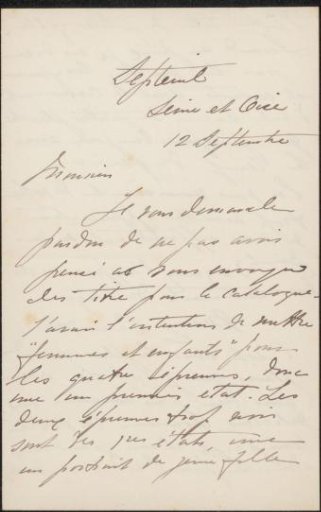 Septeuil
Seine et Oise
12 Septembre
Monsieur
Je vous demande
pardon de ne pas avoir
pensé a vous envoyer
des titre pour le catalogue.
J'avais l'intention de mettre
"femmes et enfants" pour
les quatre épreuves, donc
une en premier état. Les
deux épreuves trop noir
sont des 1ers états, une
un portrait de jeune fille